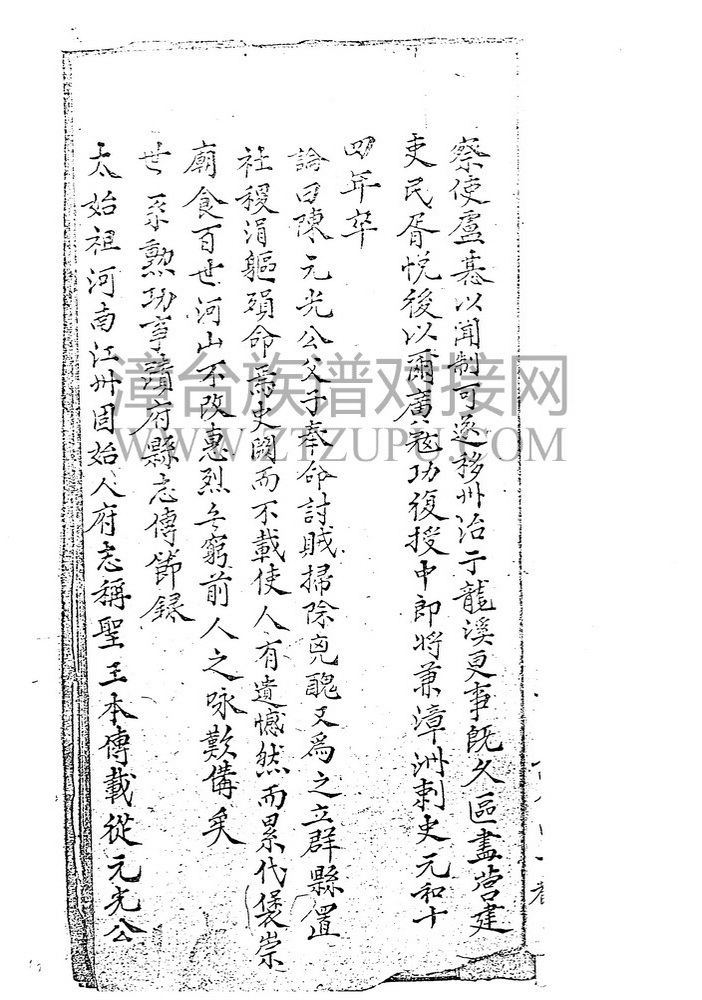 察使盧惎以聞制可遂移州治于龍溪更事既久區畫营建
吏民胥悦後以爾廣寇功復授中即将兼漳洲刺史元和十
四年卒
論曰陳元光公父子奉命討賊掃除兇醜又為之立群縣置
社稷涓軀殞命焉史闕而不載使人有遺憾然而累代褒崇
廟食百世河山不改惠烈無窮前人之咏歎備矣
世系勲功事蹟府縣志傳節録
太始祖河南江州固始人府志稱聖王本傳載從元光公
漳台族谱对接网
WWW.ZTZUPU.COM